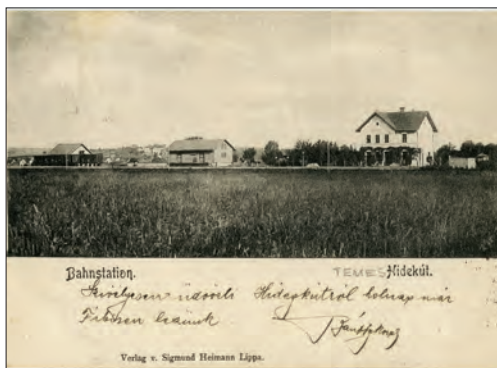 Bahnstation. TEMES Hidekút.
Szívélyesen üdvözli Hidegkútról holnap már
leszünk
Verlag v. Sigmund Heimann Lippa.